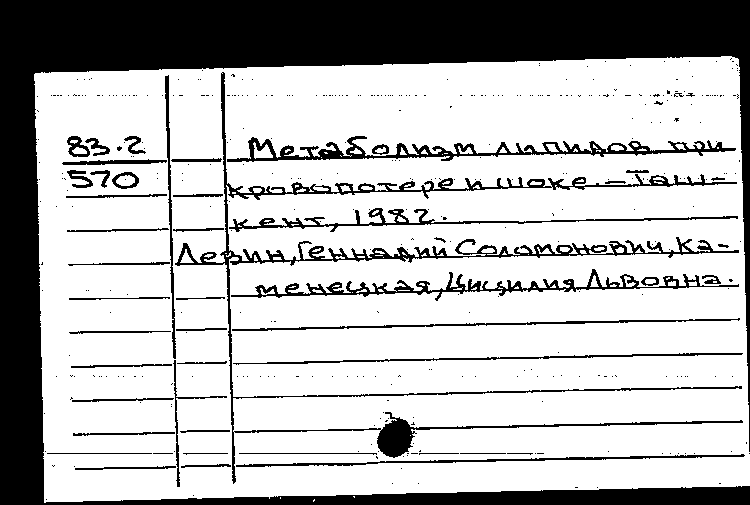 83.2 Метаболизм липидов при
570 кровопотере и шоке. – Таш-
кент, 1982.
Левин, Геннадий Соломонович, Ка-
менецкая, Цицилия Львовна.